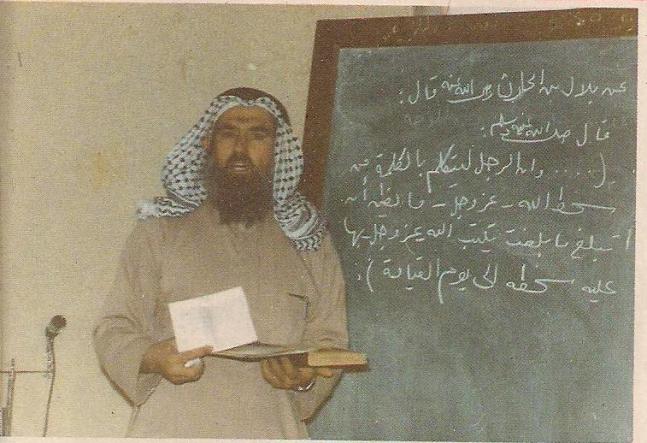 عن بلال بن الحارث رضي الله عنه قال :
قال صلى الله عليه وسلم :
( .... وإن الرجل ليتكلم بالكلمة من
سخط الله - عز وجل - ما يظن أن
تبلغ ما بلغت فيكتب الله عز وجل بها
عليه سخطه إلى يوم القيامة ) .